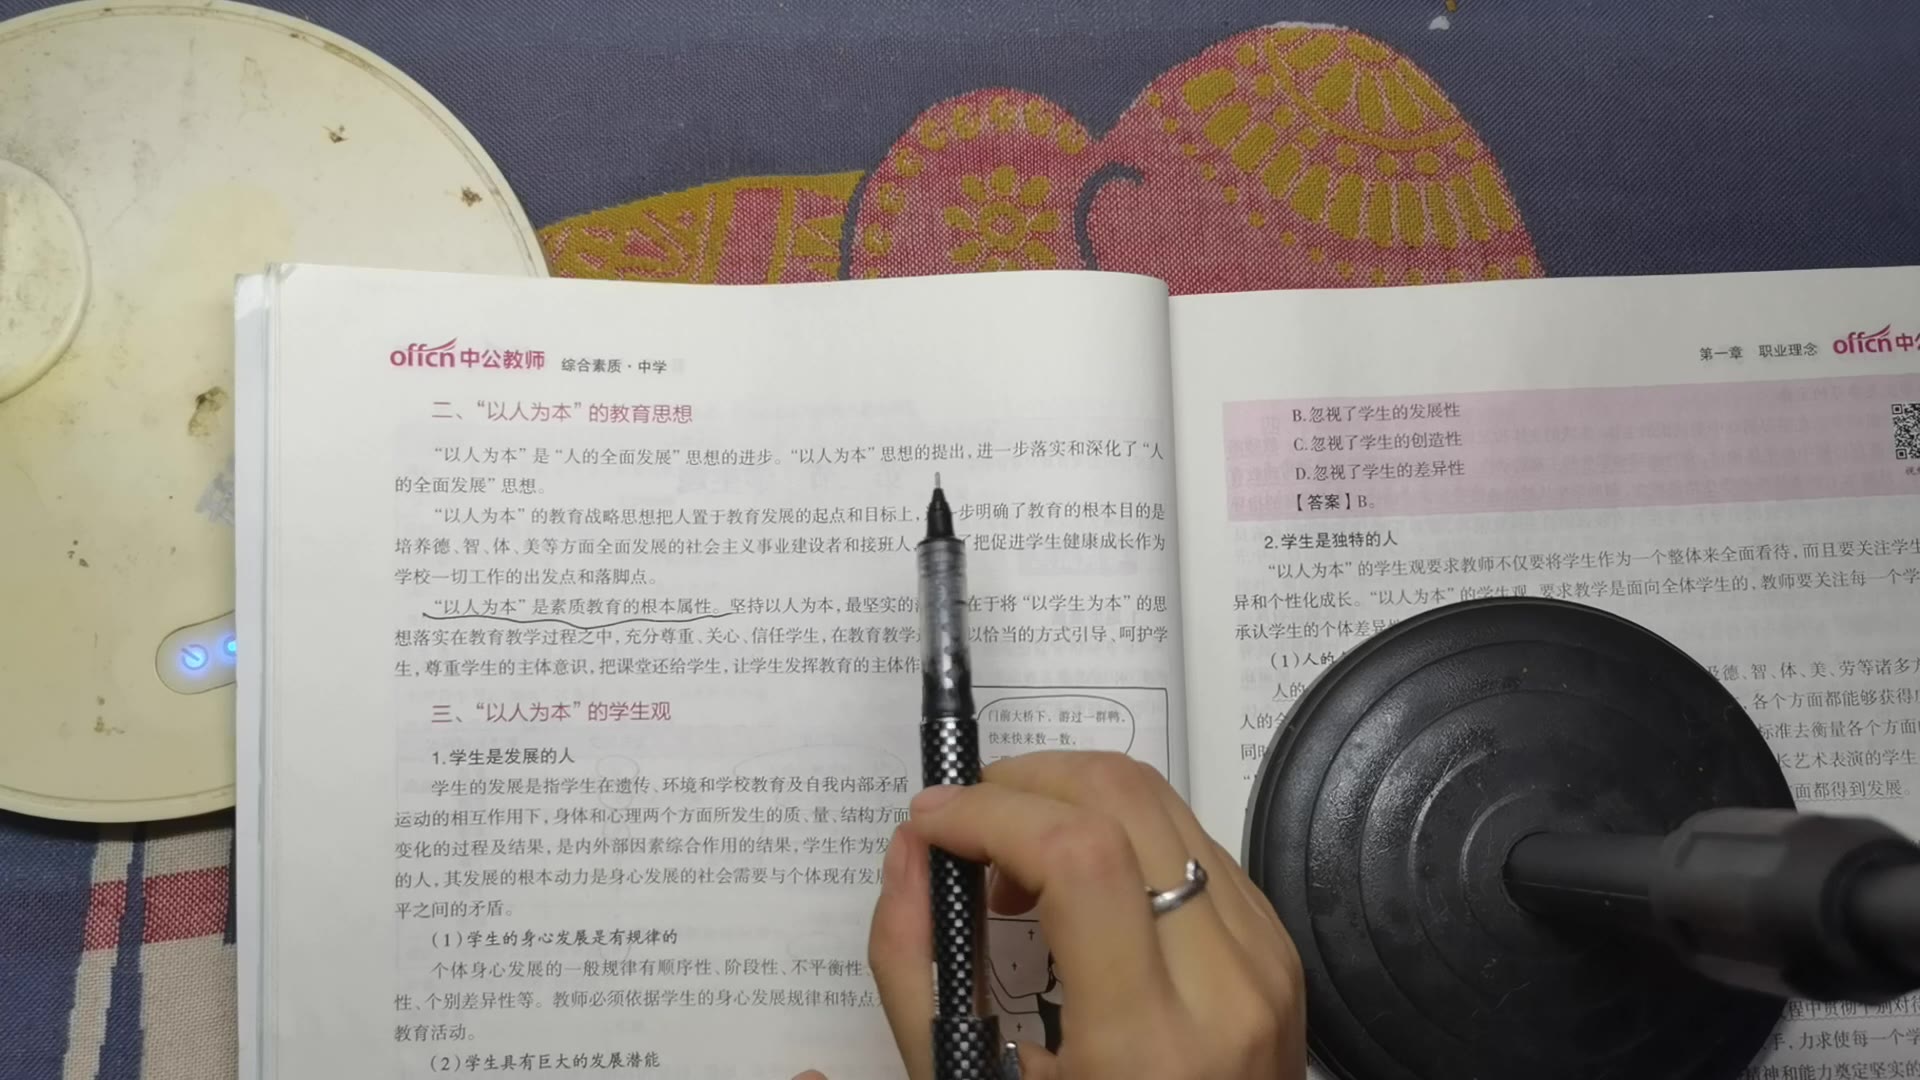 offcn中公教师 综合素质·中学
二、“以人为本”的教育思想
“以人为本”是“人的全面发展”思想的进步。“以人为本”思想的提出,进一步落实和深化了“人
的全面发展”思想。
“以人为本”的教育战略思想把人置于教育发展的起点和目标上, 步明确了教育的根本目的是
培养德、智、体、美等方面全面发展的社会主义事业建设者和接班人, 了把促进学生健康成长作为
学校一切工作的出发点和落脚点。
“以人为本”是素质教育的根本属性。坚持以人为本,最坚实的 在于将“以学生为本”的思
想落实在教育教学过程之中,充分尊重、关心、信任学生,在教育教学 以恰当的方式引导、呵护学
生,尊重学生的主体意识,把课堂还给学生,让学生发挥教育的主体作
三、“以人为本”的学生观
门前大桥下,游过一群鸭,
快来快来数一数,
1.学生是发展的人
学生的发展是指学生在遗传、环境和学校教育及自我内部矛盾
运动的相互作用下,身体和心理两个方面所发生的质、量、结构方面
变化的过程及结果,是内外部因素综合作用的结果,学生作为发
的人,其发展的根本动力是身心发展的社会需要与个体现有发展
平之间的矛盾。
(1)学生的身心发展是有规律的
个体身心发展的一般规律有顺序性、阶段性、不平衡性、
性、个别差异性等。教师必须依据学生的身心发展规律和特点
教育活动。
(2)学生具有巨大的发展潜能
第一章 职业理念 offcn中公
B.忽视了学生的发展性
C.忽视了学生的创造性
D.忽视了学生的差异性
【答案】B。
2.学生是独特的人
“以人为本”的学生观要求教师不仅要将学生作为一个整体来全面看待,而且要关注学生
异和个性化成长。“以人为本”的学生观,要求教学是面向全体学生的,教师要关注每一个学
承认学生的个体差异
(1)人的
人的 及德、智、体、美、劳等诸多方
人的全 ,各个方面都能够获得
同时 标准去衡量各个方面
长艺术表演的学生
面都得到发展。
手,力求使每一个学
精神和能力奠定坚实的